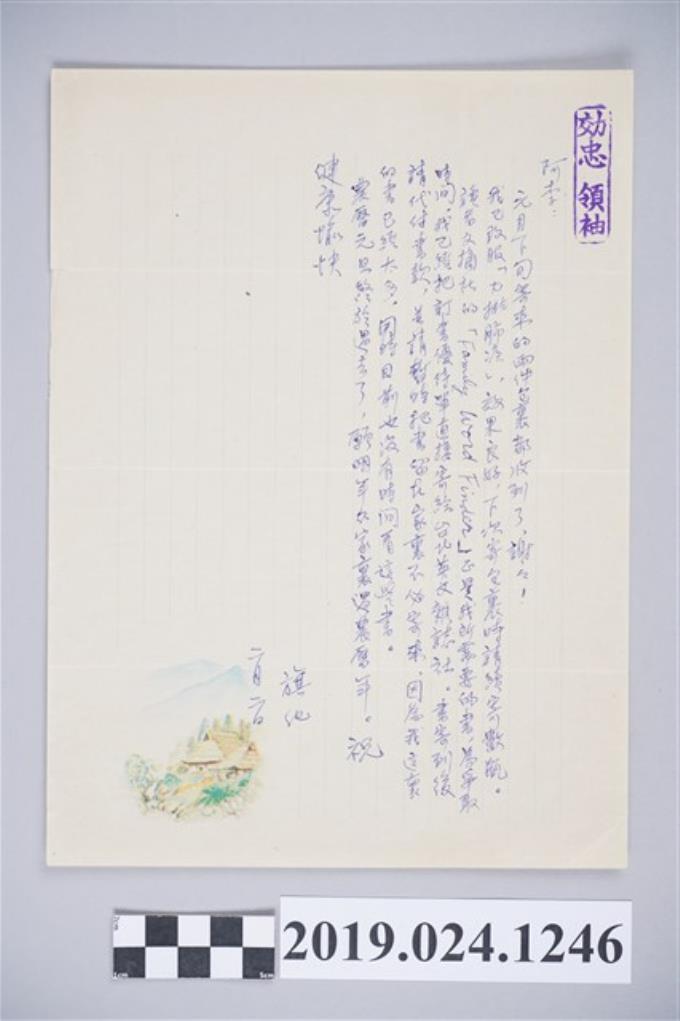 効忠領袖
阿李：
元月下旬寄來的兩件包裹都收到了，謝々！
我已改服「力排肺疾」，效果良好，下次寄包裹時請續寄數瓶。
讀者文摘社的「Family Word Finder」正是我所需要的書，為爭取
時间，我已經把訂書優待單直接寄給台北英文雜誌社。書寄到後
請代付書款，並請暫時把書留在家裏不必寄來，因為我這裏
的書已經太多，同時目前也没有時间看這些書。
農曆元旦終於過去了，願明年在家裏過農曆年。祝
健康愉快
旗化
二月二日
2019.024.1246
1cm
5cm